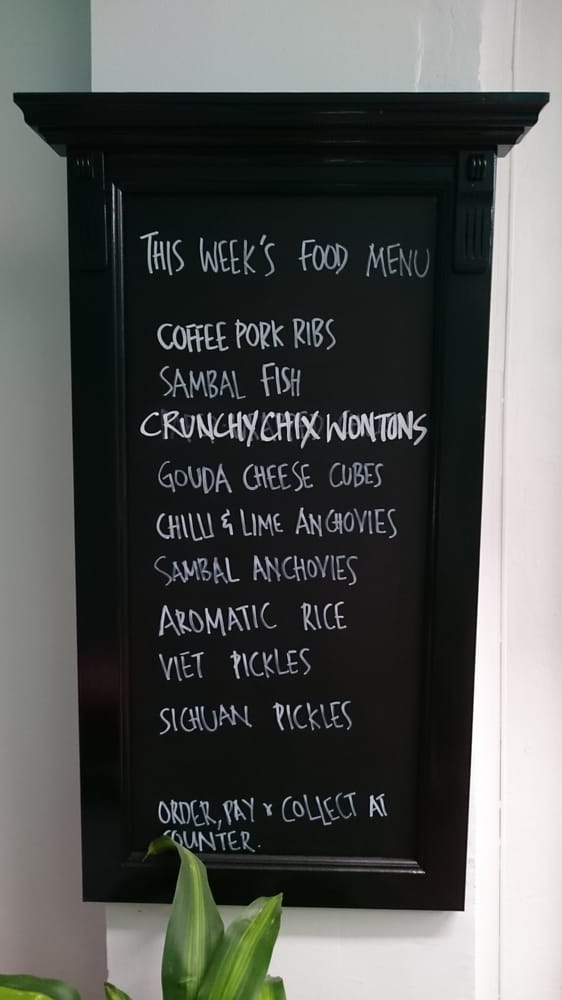 THIS WEEK'S FOOD MENU
COFFEE PORK RIBS
SAMBAL FISH
CRUNCHY CHIX WONTONS
GOUDA CHEESE CUBES
CHILLI & LIME ANCHOVIES
SAMBAL ANCHOVIES
AROMATIC RICE
VIET PICKLES
SICHUAN PICKLES
ORDER, PAY & COLLECT AT
COUNTER.